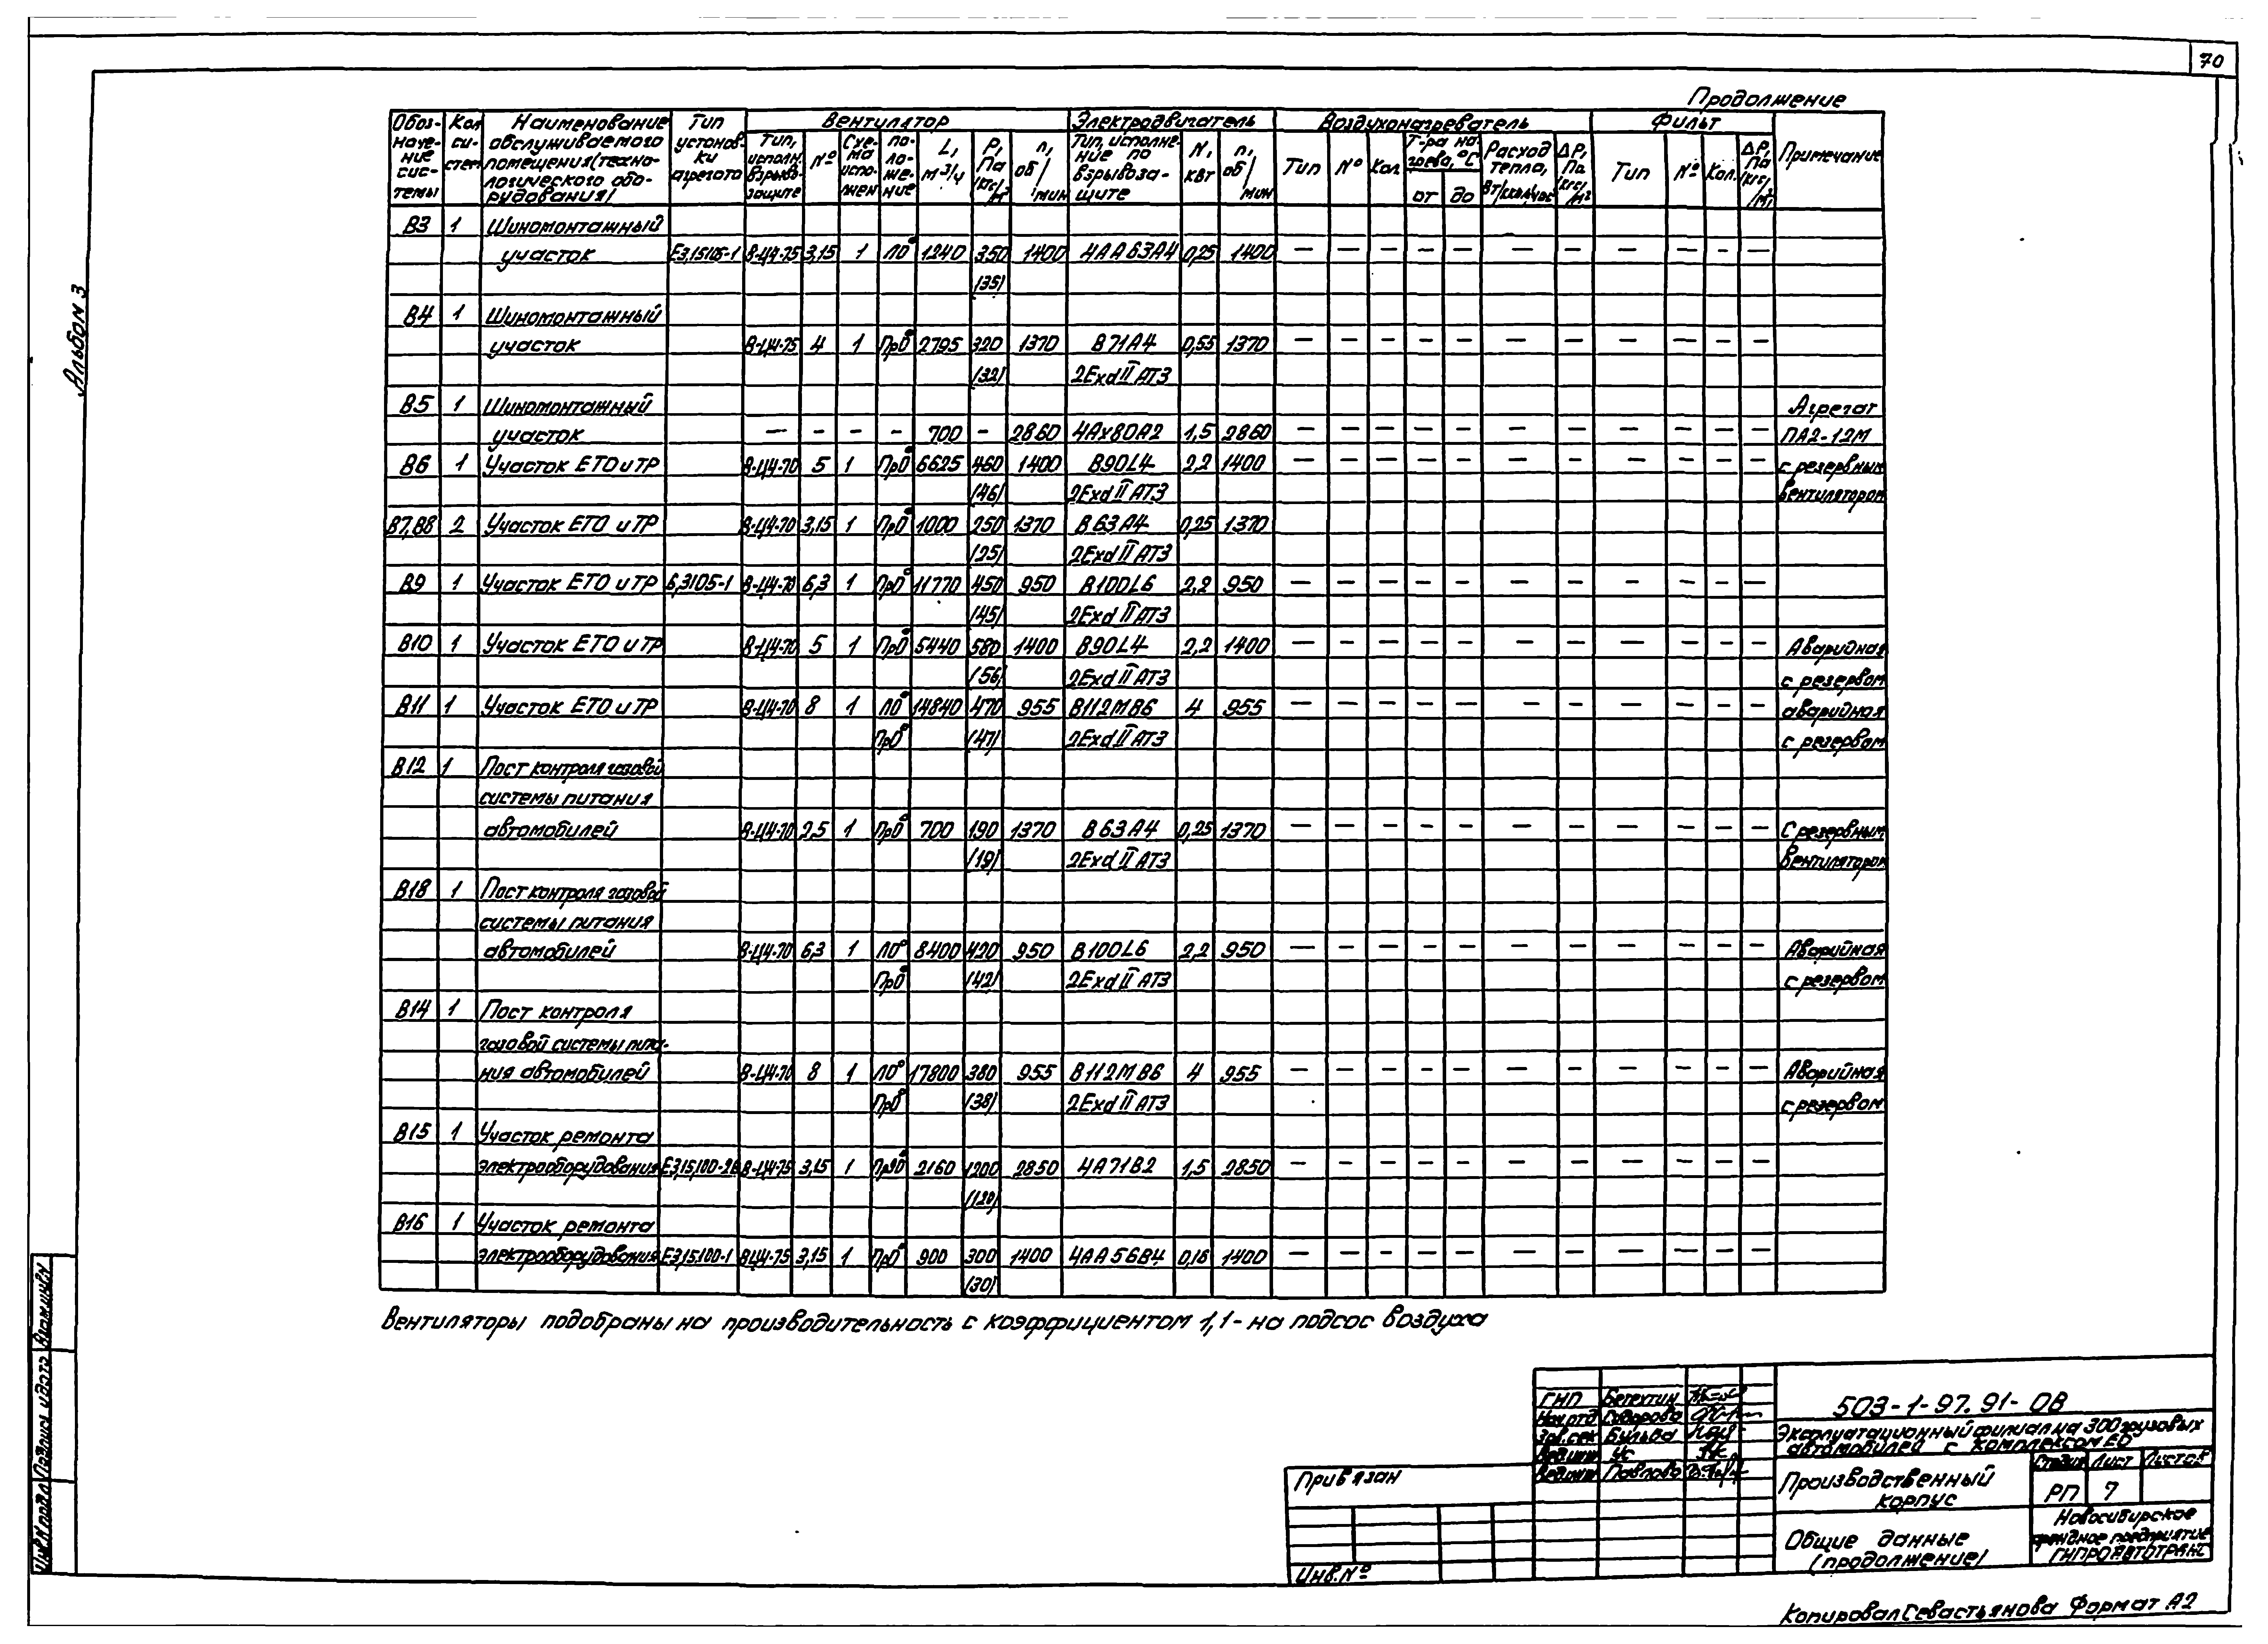 70
Продолжение
Альбом 3
Обоз-наче-ние сис-темы Кол си-стем Наименование обслуживаемого помещения (техно-логического обо-рудования) Тип установ-ки агрегата Вентилятор Электродвигатель Воздухонагреватель Фильт Примечание
Тип, исполн. взрыво-защите № Схе-ма испо-лнен по-ло-же-ние L, м³/ч P, Па (кгс/м²) n, об/мин Тип, исполне-ние по взрывоза-щите N, кВт n, об/мин Тип № Кол. Т-ра на-грева, °С от до Расход тепла, Вт/(ккал/час) ΔP, Па (кгс/м²) Тип № Кол. ΔP, Па (кгс/м²)
В3 1 Шиномонтажный
участок Е3,15105-1 В-Ц4-75 3,15 1 Л0° 1240 350 1400 4АА63А4 0,25 1400 — — — — — — — — — — —
(35)
В4 1 Шиномонтажный
участок В-Ц4-75 4 1 Пр0° 2795 320 1370 В71А4 0,55 1370 — — — — — — — — — — —
(32) 2ЕxdIIАТ3
В5 1 Шиномонтажный Агрегат
участок — — — — 700 — 2860 4Ах80А2 1,5 2860 — — — — — — — — — — — ПА2-12М
В6 1 Участок ЕТО и ТР В-Ц4-70 5 1 Пр0° 6625 460 1400 В90L4 2,2 1400 — — — — — — — — — — — с резервным
(46) 2ЕxdIIАТ3 вентилятором
В7,В8 2 Участок ЕТО и ТР В-Ц4-70 3,15 1 Пр0° 1000 250 1370 В63А4 0,25 1370
(25) 2ЕxdIIАТ3
В9 1 Участок ЕТО и ТР 6,3105-1 В-Ц4-70 6,3 1 Пр0° 11770 450 950 В100L6 2,2 950 — — — — — — — — — — —
(45) 2ЕxdIIАТ3
В10 1 Участок ЕТО и ТР В-Ц4-70 5 1 Пр0° 5440 580 1400 В90L4 2,2 1400 — — — — — — — — — — — Аварийная
(56) 2ЕxdIIАТ3 с резервом
В11 1 Участок ЕТО и ТР В-Ц4-70 8 1 Л0° 14840 470 955 В112МВ6 4 955 — — — — — — — — — — — аварийная
Пр0° (47) 2ЕxdIIАТ3 с резервом
В12 1 Пост контроля газовой
системы питания
автомобилей В-Ц4-70 2,5 1 Пр0° 700 190 1370 В63А4 0,25 1370 — — — — — — — — — — — С резервным
(19) 2ЕxdIIАТ3 вентилятором
В18 1 Пост контроля газовой
системы питания
автомобилей В-Ц4-70 6,3 1 Л0° 8400 420 950 В100L6 2,2 950 — — — — — — — — — — — Аварийная
Пр0° (42) 2ЕxdIIАТ3 с резервом
В14 1 Пост контроля
газовой системы пита-
ния автомобилей В-Ц4-70 8 1 Л0° 17800 380 955 В112МВ6 4 955 — — — — — — — — — — — Аварийная
Пр0° (38) 2ЕxdIIАТ3 с резервом
В15 1 Участок ремонта
электрооборудования Е3,15,100-2В В-Ц4-75 3,15 1 Пр90° 2160 1200 2850 4А71В2 1,5 2850 — — — — — — — — — — —
(120)
В16 1 Участок ремонта
электрооборудования Е3,15,100-1 В-Ц4-75 3,15 1 Пр0° 900 300 1400 4АА56В4 0,18 1400 — — — — — — — — — — —
(30)
Вентиляторы подобраны на производительность с коэффициентом 1,1 - на подсос воздуха
ГИП Бегехтин
Нач.отд Сидорова
Зав.сек Бульва
Вед.инж Ус
Вед.инж Павлова
503-1-97.91-ОВ
Эксплуатационный филиал на 300 грузовых
автомобилей с комплексом ЕО
Производственный
корпус
Стадия Лист Листов
РП 7
Общие данные
(продолжение)
Новосибирское
арендное предприятие
ГИПРОАВТОТРАНС
Привязан
Инв.№
Инв.№ подл Подпись и дата Взам.инв.№
Копировал Севастьянова Формат А2